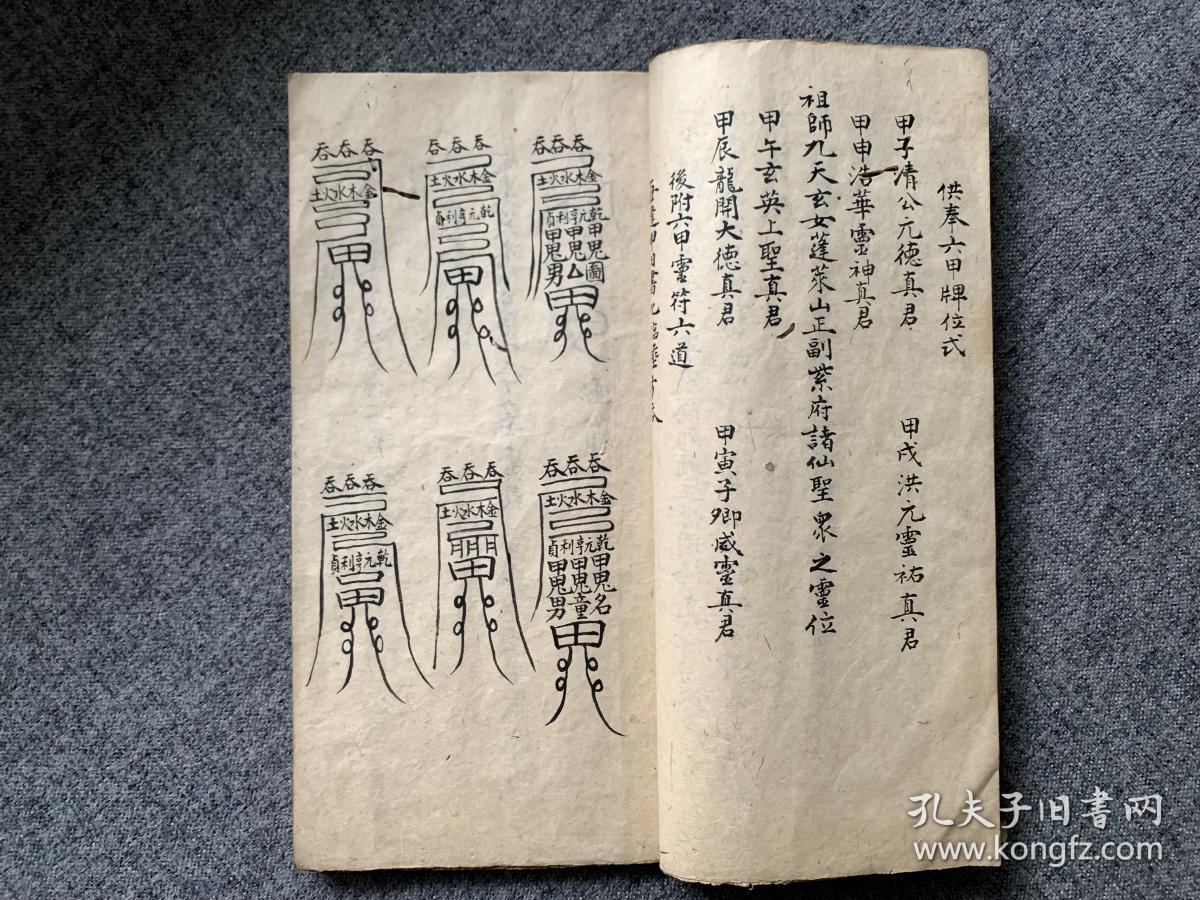 供奉六甲牌位式
甲子清公元德真君
甲戌洪元靈祐真君
甲申浩華靈神真君
祖師九天玄女蓬萊山正副紫府諸仙聖眾之靈位
甲午玄英上聖真君
甲辰龍開大德真君
甲寅子卿咸靈真君
後附六甲靈符六道
吞吞吞
金木水火土
乾元亨利貞
甲鬼圖
甲鬼厶
甲鬼男
吞吞吞
金木水火土
乾元亨利貞
甲
吞吞吞
金木水火土
甲
吞吞吞
金木水火土
乾元亨利貞
甲鬼名
甲鬼童
甲鬼男
吞吞吞
金木水火土
吞吞吞
金木水火土
乾元亨利貞
孔夫子旧书网
www.kongfz.com